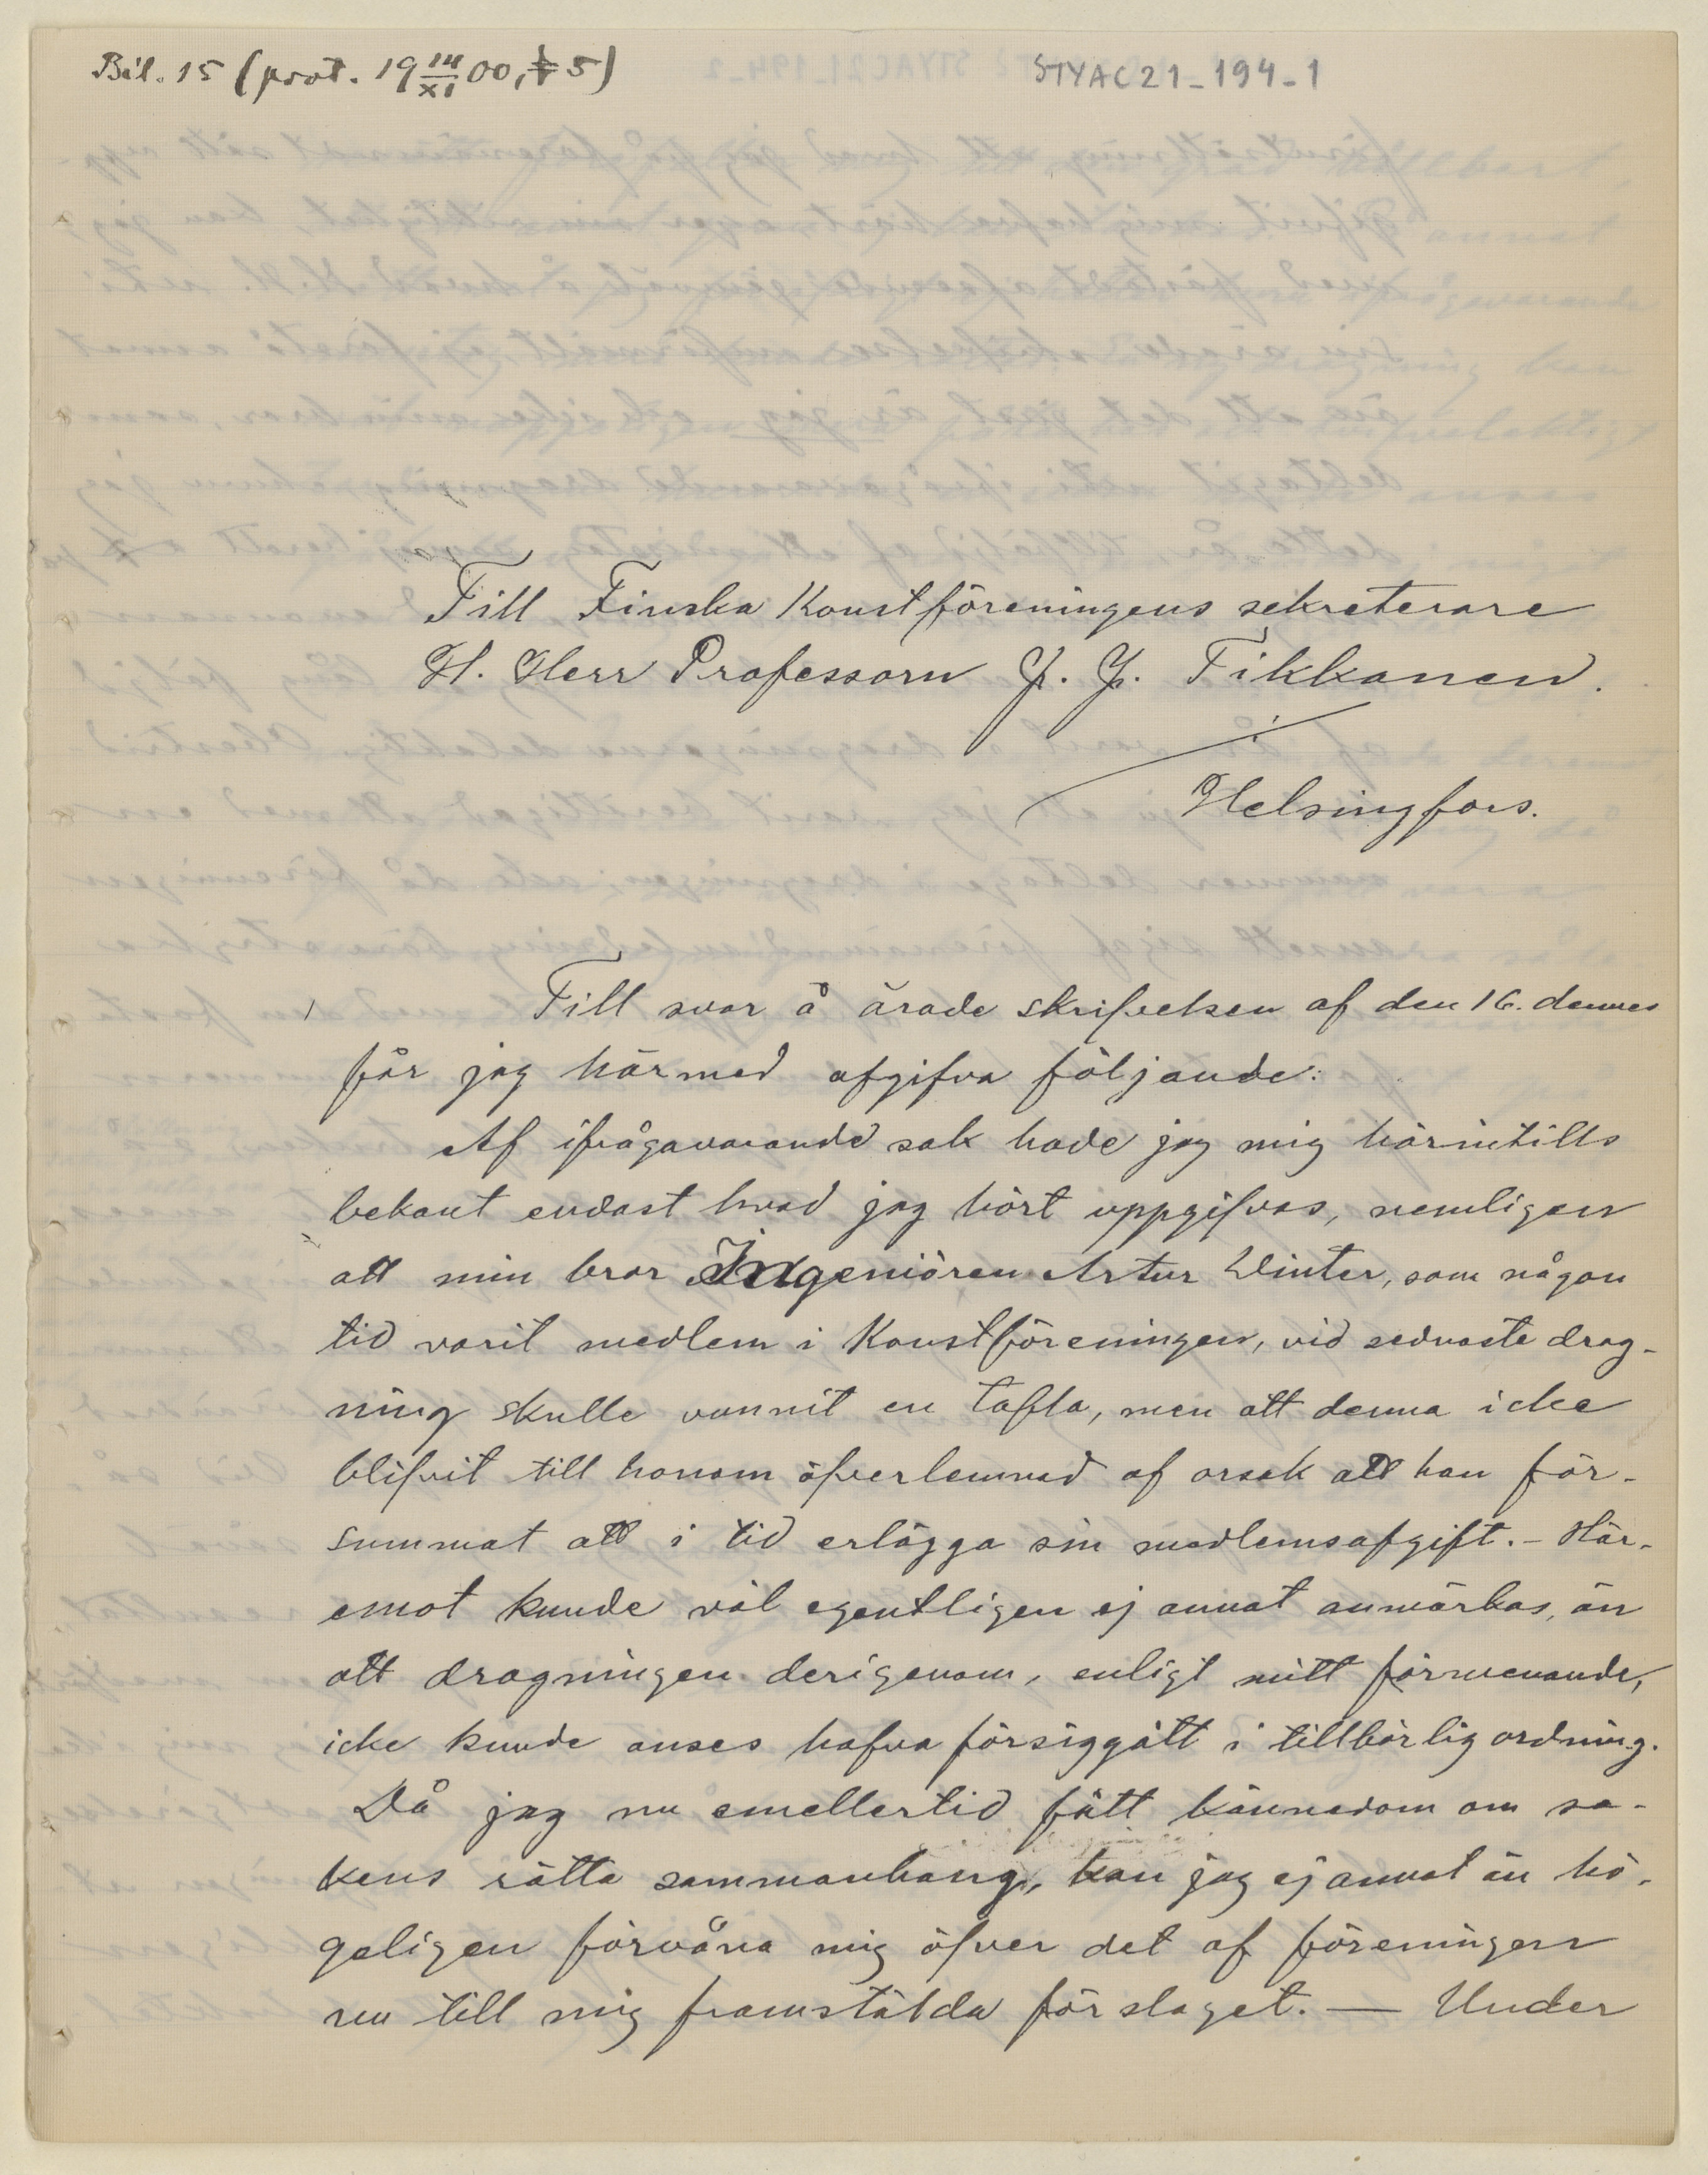 Bil. 15 (prot. 19 14/XI 00, § 5)
STYAC21-194-1
Till Finska Konstföreningens sekreterare
H. Herr Professorn J. J. Tikkanen.
Helsingfors.
Till svar å ärade skrifvelsen af den 16. dennes
får jag härmed afgifva följande:
Af ifrågavarande sak hade jag mig härintills
bekant endast hvad jag hört uppgifvas, nemligen
att min bror Ingeniören Artur Winter, som någon
tid varit medlem i Konstföreningen, vid sednaste drag-
ning skulle vunnit en tafla, men att denna icke
blifvit till honom öfverlemnad af orsak att han för-
summat att i tid erlägga sin medlemsafgift. - Här-
emot kunde väl egentligen ej annat anmärkas, än
att dragningen derigenom, enligt mitt förmenande,
icke kunde anses hafva försiggått i tillbörlig ordning.
Då jag nu emellertid fått kännedom om sa-
kens rätta sammanhang, kan jag ej annat än hö-
geligen förvåna mig öfver det af föreningen
nu till mig framstälda förslaget. — Under